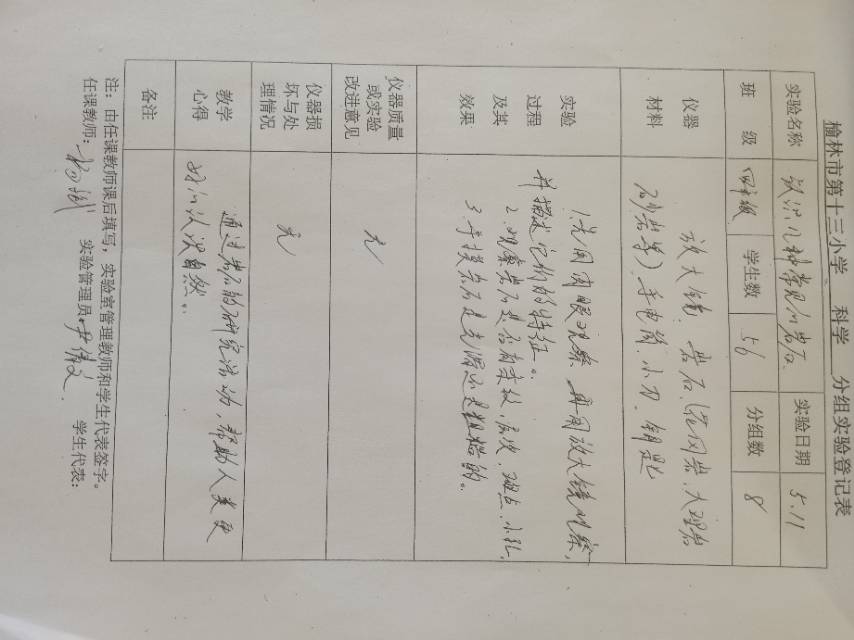 榆林市第十三小学 科学 分组实验登记表
实验名称 认识几种常见的岩石 实验日期 5.11
班 级 四年级 学生数 56 分组数 8
仪器
材料
放大镜、岩石(花岗岩、大理岩
砂岩等)手电筒、小刀、钥匙
实验
过程
及其
效果
1.先用肉眼观察,再用放大镜观察,
并描述它们的特征。
2.观察岩石是否有条纹、层次、斑点、小孔,
3.手摸岩石是光滑还是粗糙的。
仪器质量
或实验
改进意见
无
仪器损
坏与处
理情况
无
教学
心得
通过岩石的研究活动,帮助人类更
好的认识自然。
备注
注:由任课教师课后填写,实验室管理教师和学生代表签字。
任课教师: 实验管理员: 学生代表: